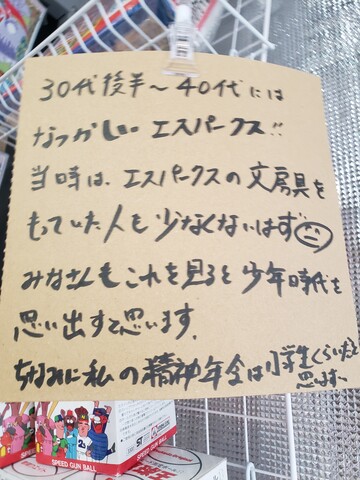 30代後半～40代には
なつかしい エスパークス!!
当時は、エスパークスの文房具を
もっていた人も少なくないはず
みなさんもこれを見ると少年時代を
思い出すと思います。
ちなみに私の精神年令は小学生くらいだと
思います～
SPEED GUN BALL
ST
SPEED GUN BALL